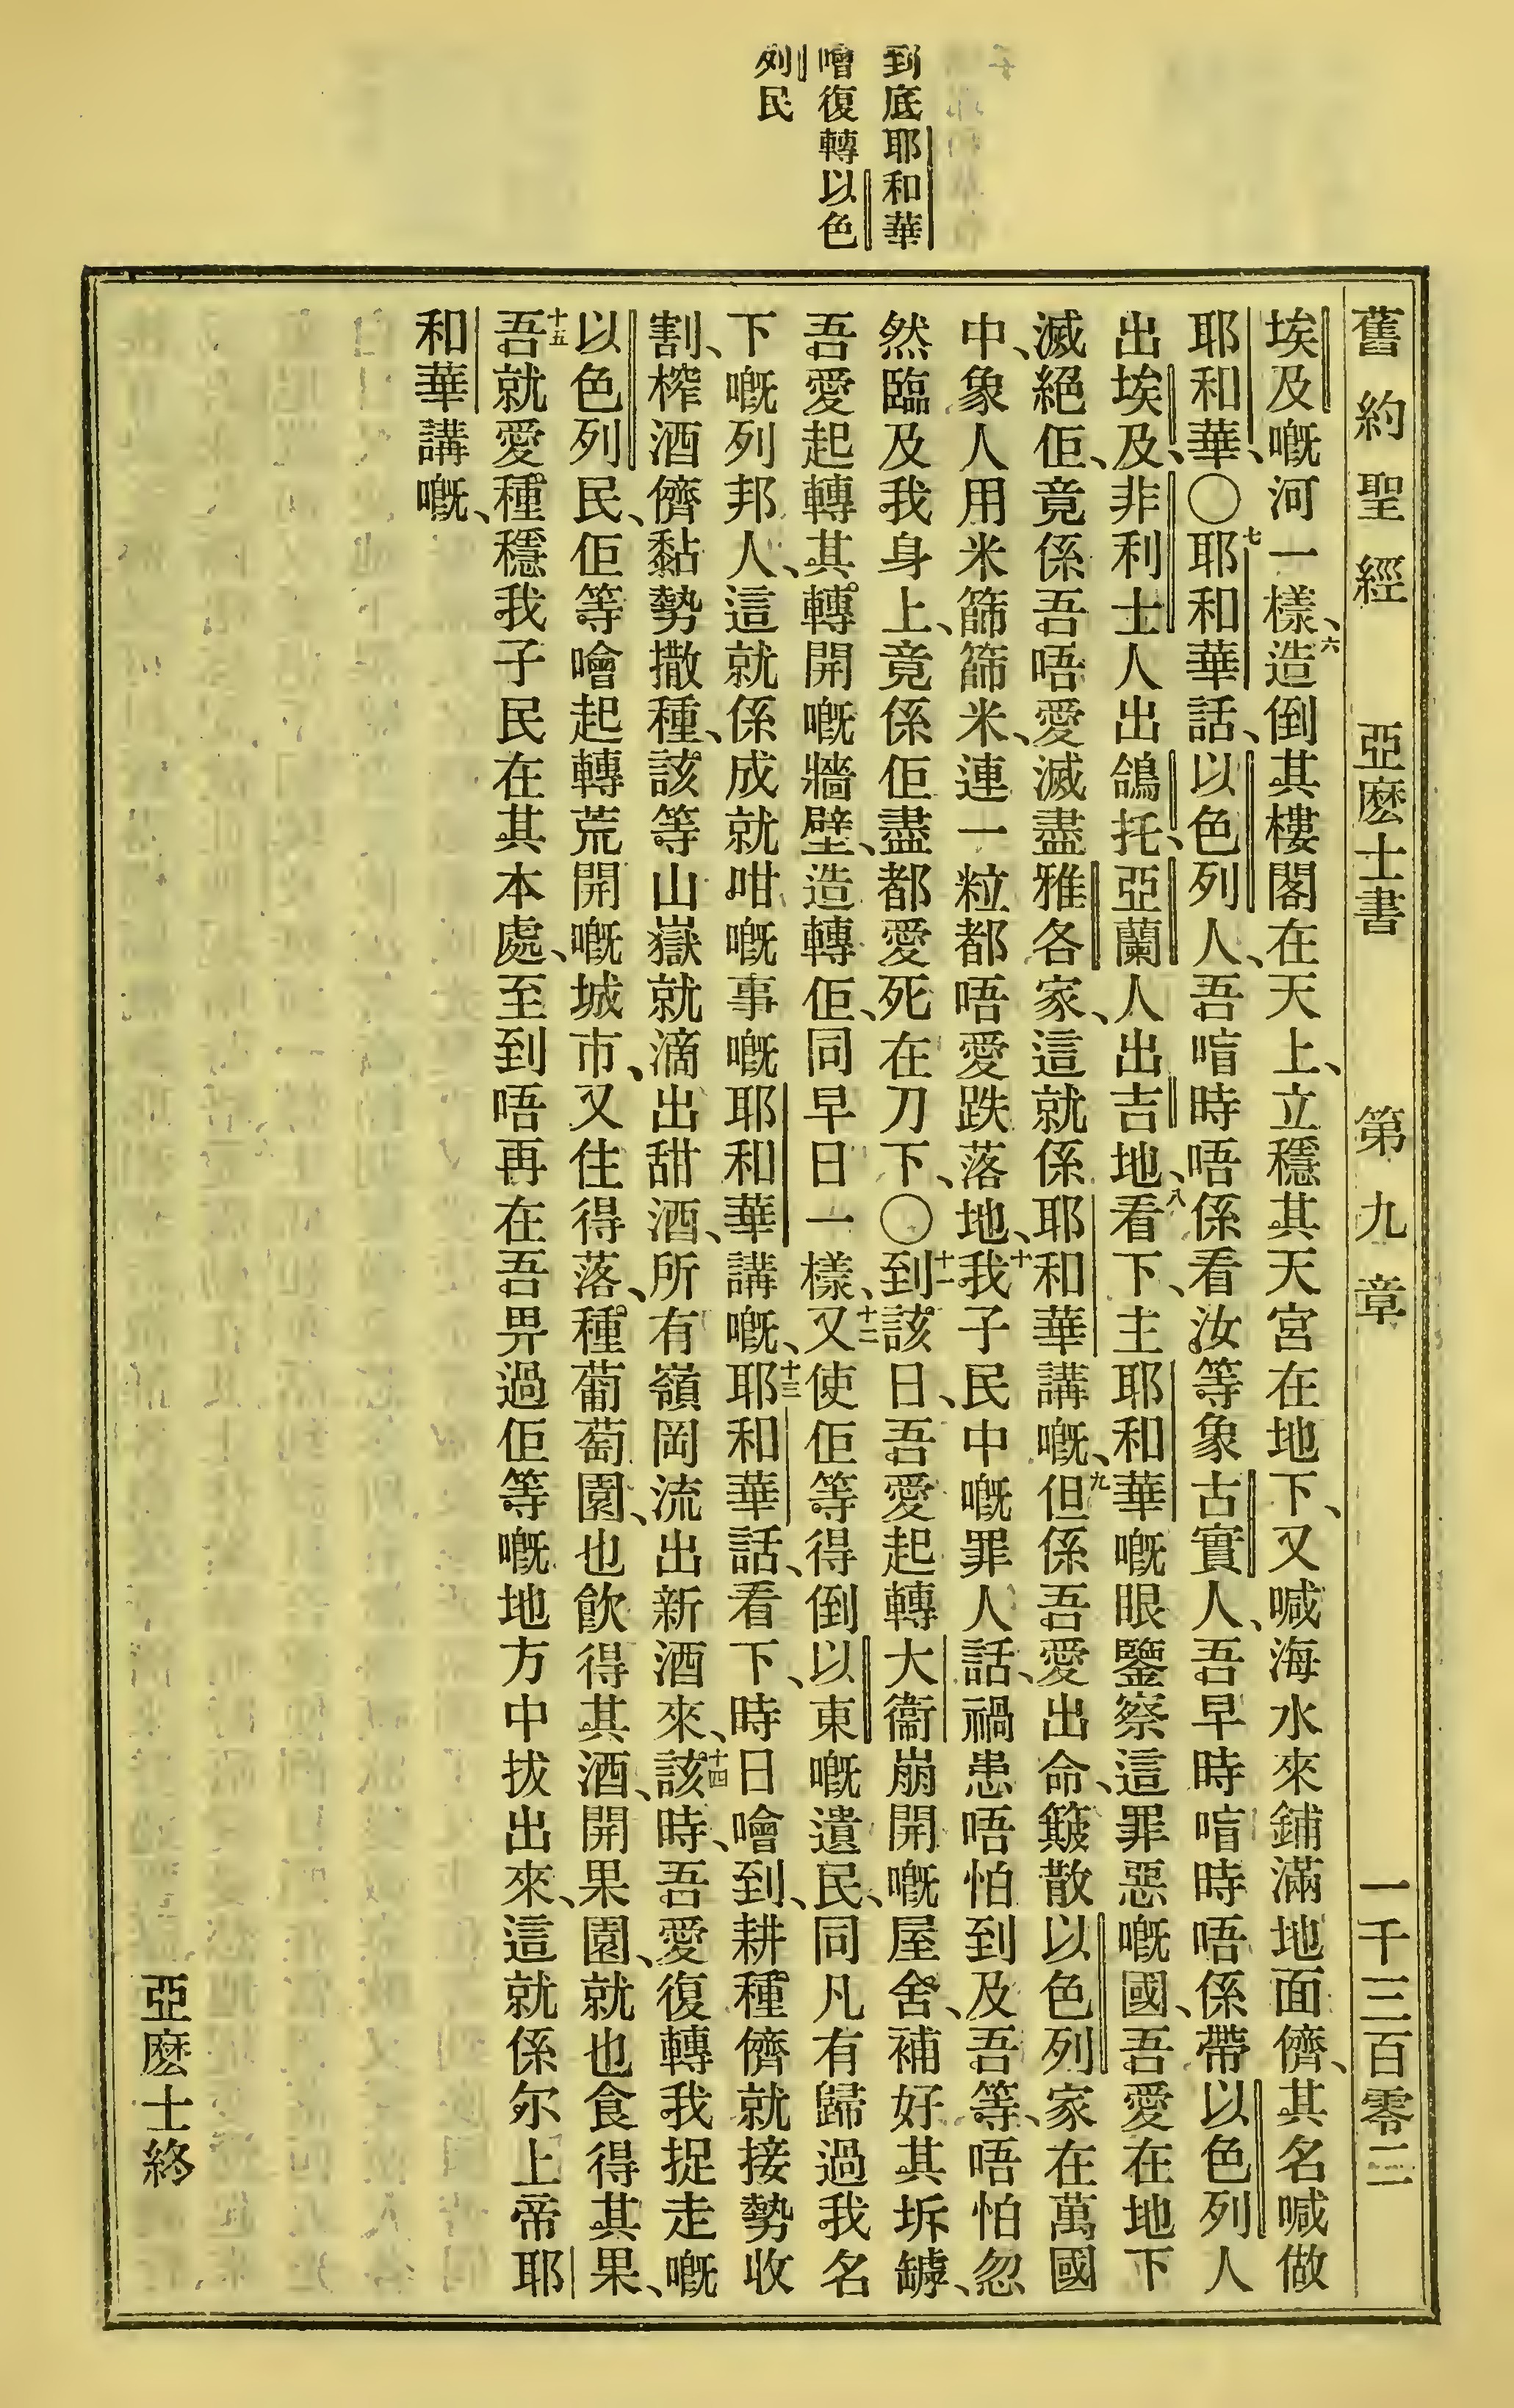 到底耶和華
噲復轉以色
列民
舊約聖經 亞麽士書 第九章 一千三百零二
埃及嘅河一樣、六造倒其樓閣在天上、立穩其天宮在地下、又喊海水來鋪滿地面儕、其名喊做
耶和華、〇七耶和華話、以色列人、吾喑時唔係看汝等象古實人、吾早時喑時唔係帶以色列人
出埃及、非利士人出鴿托、亞蘭人出吉地、八看下、主耶和華嘅眼鑒察這罪惡嘅國、吾愛在地下
滅絕佢、竟係吾唔愛滅盡雅各家、這就係耶和華講嘅、九但係吾愛出命、簸散以色列家在萬國
中、象人用米篩篩米、連一粒都唔愛跌落地、十我子民中嘅罪人話、禍患唔怕到及吾等、唔怕忽
然臨及我身上、竟係佢盡都愛死在刀下、〇十一到該日、吾愛起轉大衞崩開嘅屋舍、補好其坼罅、
吾愛起轉其轉開嘅牆壁、造轉佢、同早日一樣、十二又使佢等得倒以東嘅遺民、同凡有歸過我名
下嘅列邦人、這就係成就咁嘅事嘅耶和華講嘅、十三耶和華話、看下、時日噲到、耕種儕就接勢收
割、榨酒儕黏勢撒種、該等山嶽就滴出甜酒、所有嶺岡流出新酒來、十四該時、吾愛復轉我捉走嘅
以色列民、佢等噲起轉荒開嘅城市、又住得落、種葡萄園、也飲得其酒、開果園、就也食得其果、
十五吾就愛種穩我子民在其本處、至到唔再在吾畀過佢等嘅地方中拔出來、這就係尔上帝耶
和華講嘅、
亞麽士終